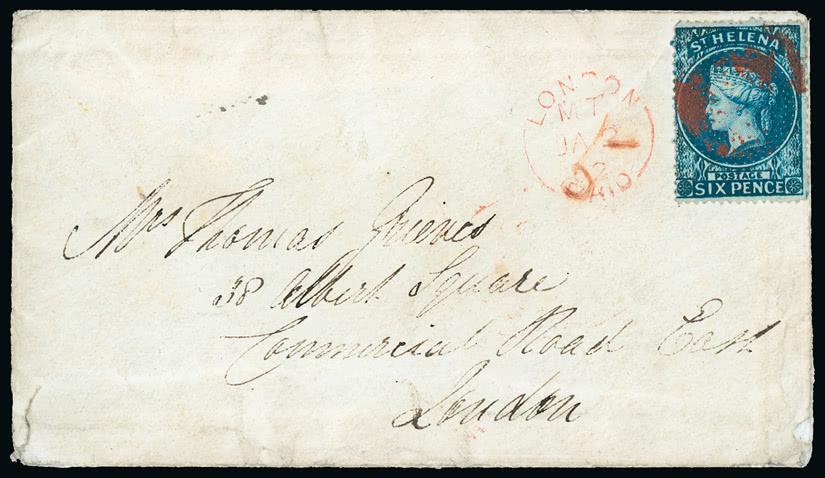 ST HELENA
POSTAGE
SIX PENCE
LONDON
MT
JA 2
62
PAID
Mrs Thomas Grieves
38 Albert Square
Commercial Road East
London